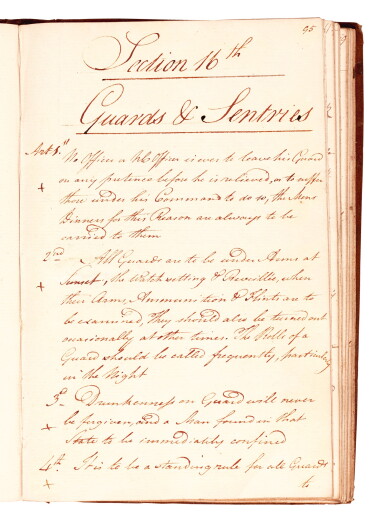 95
Section 16th
Guards & Sentries
Art 1st No Officer or NC Officer is ever to leave his Guard
on any pretence before he is relieved, or to suffer
those under his Command to do so, the Mens
Dinners for this Reason are always to be
carried to them
2nd All Guards are to be under Arms at
Sunset, the Watch setting & Reveillee, when
their Arms, Ammunition & Flints are to
be examined, They should also be turned out
occasionally at other times. The Rolls of a
Guard should be called frequently, particularly
in the Night
3d Drunkenness on Guard will never
be forgiven, and a Man found in that
State to be immediately confined
4th It is to be a standing rule for all Guards
to